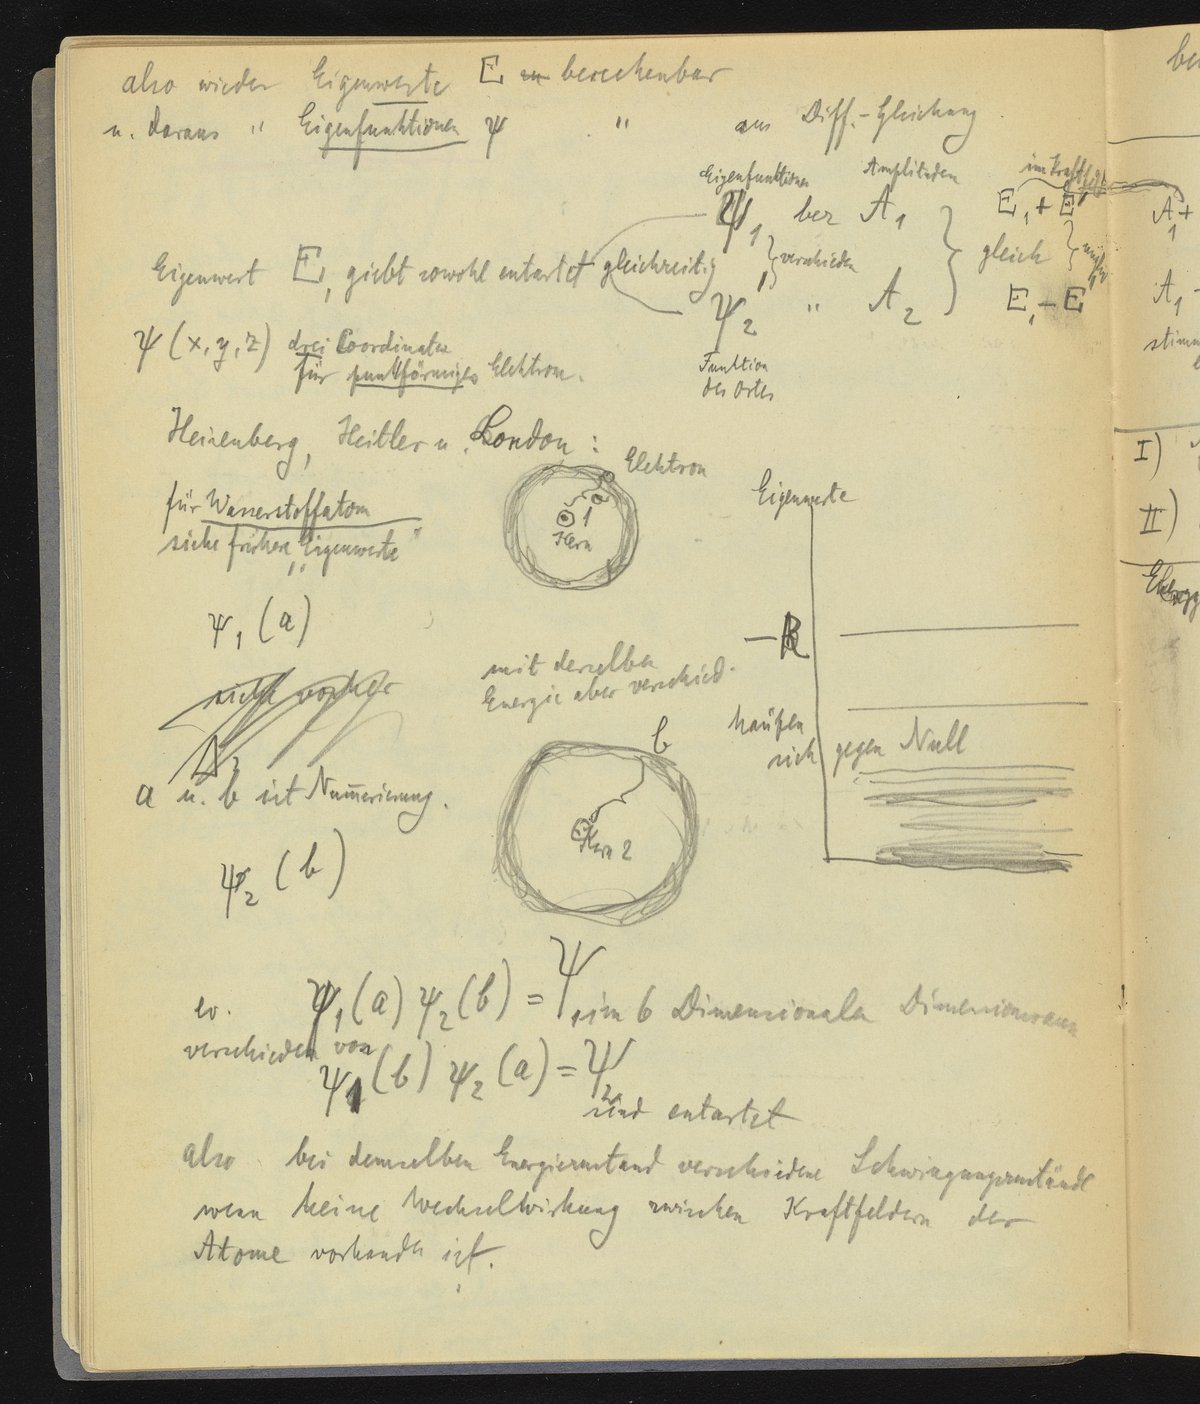 also wieder Eigenwerte E berechenbar
u. daraus " Eigenfunktionen ψ " aus Diff.-Gleichung
Eigenfunktionen Amplituden im Kraftfeld
ψ₁ bei A₁ E₁ + E'
verschieden gleich
Eigenwert E₁ giebt sowohl entartet gleichzeitig
ψ₂ " A₂ E₁ - E'
Funktion
des Ortes
ψ (x, y, z) drei Coordinaten
für punktförmiges Elektron.
Heisenberg, Heitler u. London :
Elektron
a
1
Kern
für Wasserstoffatom
siehe frühere „Eigenwerte"
Eigenwerte
- R
häufen
sich gegen Null
ψ₁ (a)
mit derselben
Energie aber verschied.
b
Kern 2
a u. b ist Numerierung.
ψ₂ (b)
ψ₁(a) ψ₂(b) = Ψ₁ im 6 Dimensionalen Dimensionsraum
verschieden von
ψ₁(b) ψ₂(a) = Ψ₂
sind entartet
also bei demselben Energiezustand verschiedene Schwingungszustände
wenn keine Wechselwirkung zwischen Kraftfeldern der
Atome vorhanden ist.
be
A₁ +
A₁ -
stimm
I)
II)